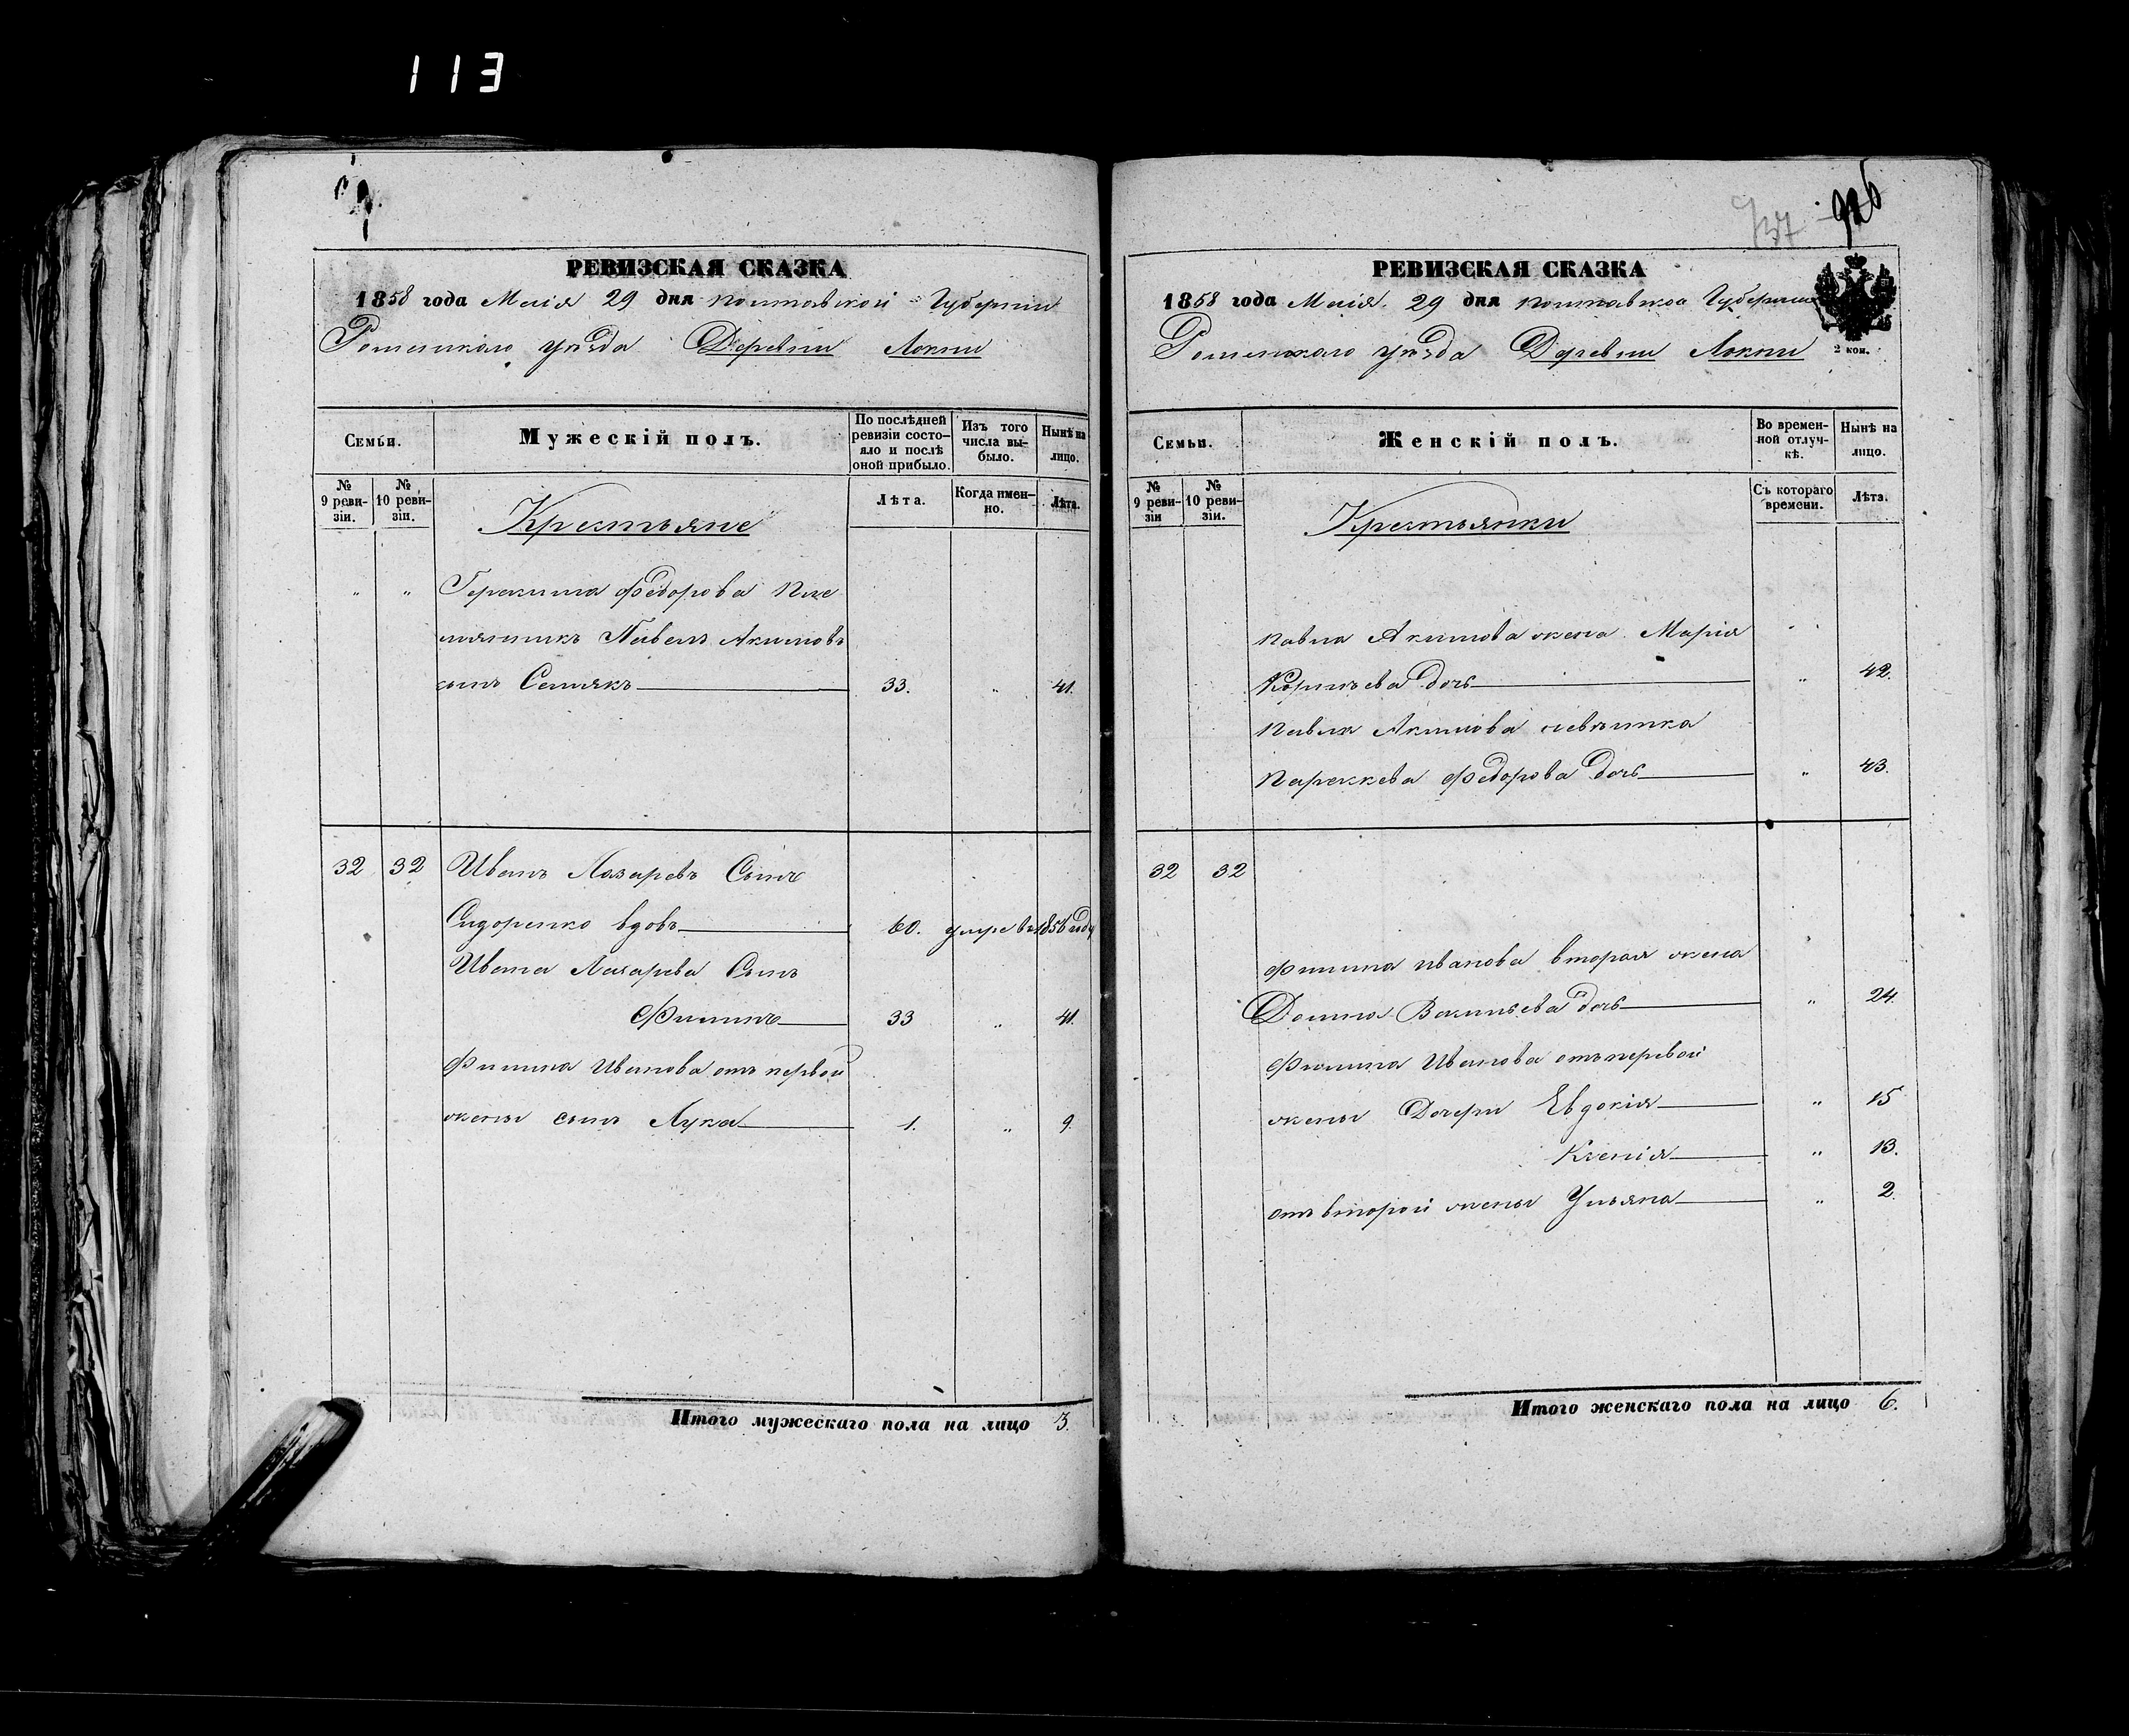 113
926
РЕВИЗСКАЯ СКАЗКА
1858 года Маія 29 дня Полтавской Губерніи
Роменскаго уѣзда Деревни Локни
Семьи.
Мужескій полъ.
По послѣдней ревизіи состояло и послѣ оной прибыло.
Изъ того числа выбыло.
Нынѣ на лицо.
№ 9 ревизіи.
№ 10 ревизіи.
Крестьяне
Лѣта.
Когда именно.
Лѣта.
" " Герасима Федорова Пле
мянникъ Павелъ Акимовъ
сынъ Семякъ 33. " 41.
32 32 Иванъ Лазаревъ Сынъ
Сидоренко вдовъ 60. умре въ 1856 году
Ивана Лазарева Сынъ
Филипъ 33 " 41.
Филипа Иванова отъ первой
жены сынъ Лука 1. " 9.
Итого мужескаго пола на лицо 3.
РЕВИЗСКАЯ СКАЗКА
1858 года Маія 29 дня Полтавской Губерніи
Роменскаго уѣзда Деревни Локни
2 коп.
Семьи.
Женскій полъ.
Во временной отлучкѣ.
Нынѣ на лицо.
№ 9 ревизіи
№ 10 ревизіи.
Крестьянки
Съ котораго времени.
Лѣта.
Павла Акимова жена Марія
дочь " 42.
Павла Акимова невѣстка
Параскева Федорова дочь " 43.
32 32
Филипа Иванова вторая жена
Домна Васильева дочь " 24.
Филипа Иванова отъ первой
жены Дочери Евдокія " 15
Ксенія " 13.
отъ второй жены Ульяна " 2.
Итого женскаго пола на лицо 6.